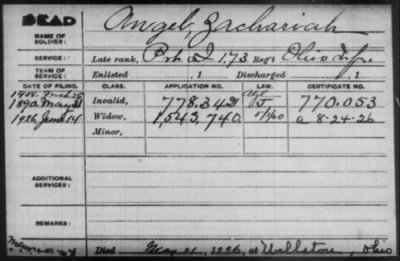 DEAD
NAME OF SOLDIER: Angel, Zachariah
SERVICE: Late rank, Pvt. Co I, 173 Reg't Ohio Inf.
TERM OF SERVICE: Enlisted , 1 Discharged , 1
DATE OF FILING. CLASS. APPLICATION NO. LAW. CERTIFICATE NO.
1890. May 31 Invalid, 778.342 J 770.053
1926, June 14 Widow, 1,543,740 5/1/20 a 8-24-26
Minor,
ADDITIONAL SERVICES:
REMARKS:
Died May 21, 1926, at Wellston, Ohio